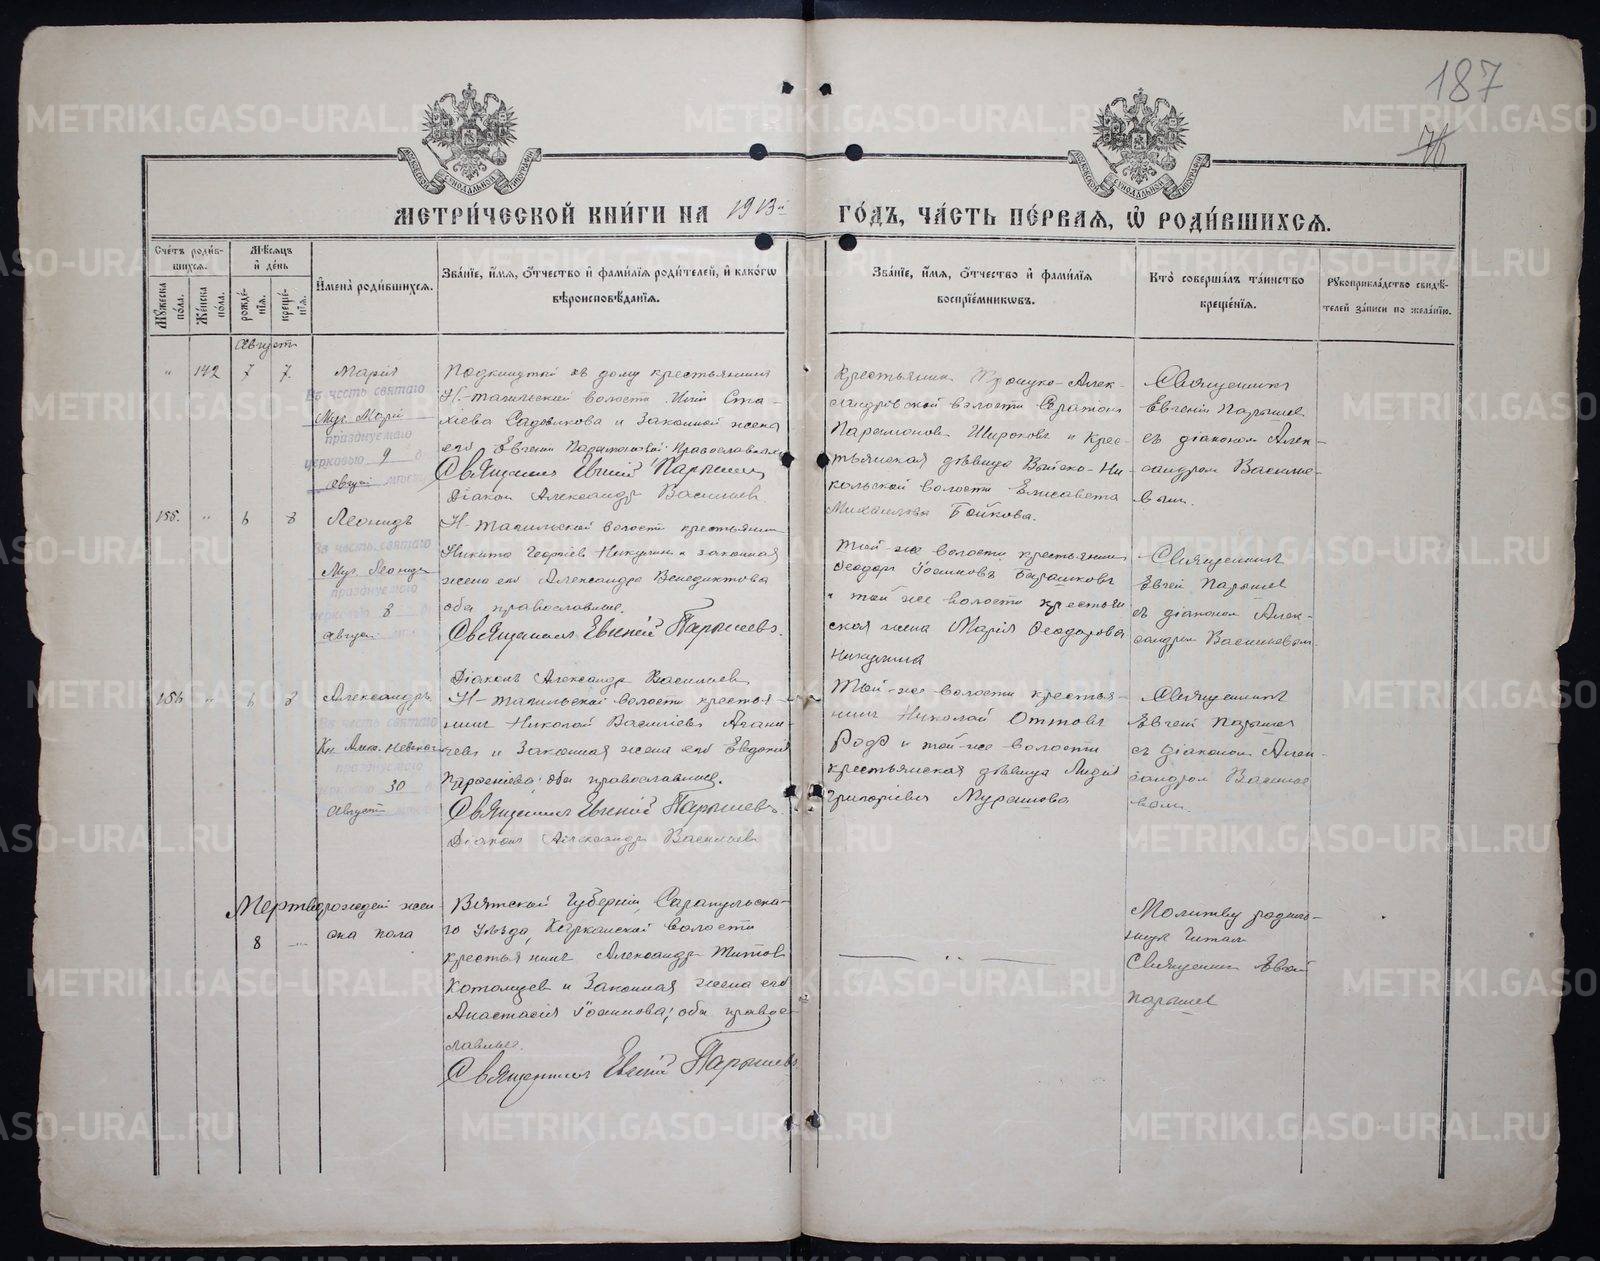 187
МЕТРИ́ЧЕСКОЙ КНИ́ГИ НА 1913й ГО́ДЪ, ЧА́СТЬ ПЕ́РВАЯ, Ѡ҆ РОДИ́ВШИХСѦ.
Сче́тъ роди́вшихсѧ.
Мѣ́сѧцъ и҆ де́нь
Мꙋ́жеска по́ла.
Же́нска по́ла.
рожде́нїѧ.
креще́нїѧ.
И҆мена̀ роди́вшихсѧ.
Зва́нїе, и҆́мѧ, ѻ҆́тчество и҆ фами́лїѧ роди́телей, и҆ како́гѡ
вѣроисповѣ́данїѧ.
Зва́нїе, и҆́мѧ, ѻ҆́тчество и҆ фами́лїѧ
воспрїе́мникѡвъ.
Кто̀ соверша́лъ та́инство
креще́нїѧ.
Рꙋкоприкла́дство свидѣ́-
телей за́писи по жела́нїю.
Августъ
" 142 7 7
Марія
Въ честь святаго
Муч. Маріи
празднуемаго
церковью 9
Август
Подкинутой къ дому крестьянина
Н-тагильской волости Иліи Ста-
хіева Садовикова и законной жена
его Евгеніи православныхъ
Священникъ Евгеній Парышевъ
Діаконъ Александръ Васильевъ
Крестьянинъ Троицко-Алек-
сандровской волости
Парамоновъ Широковъ и крес-
тьянская дѣвица Выйско-Ни-
кольской волости Елисавета
Михаилова Бойкова.
Священникъ
Евгеній Парышев
съ діакономъ Алек-
сандромъ Василье-
вымъ.
155. " 6 8
Леонидъ
Въ честь святаго
Муч. Леонида
празднуемаго
церковью 8
Август
Н-тагильской волости крестьянинъ
Никита Георгіев Никулинъ и законная
жена его Александра Венедиктова
оба православные.
Священникъ Евгеній Парышевъ.
Діаконъ Александръ Васильевъ
Той-же волости крестьянинъ
Ѳеодоръ Іоанновъ Барашковъ
и той же волости крестьян
ская жена Марія Ѳеодорова
Никулина
Священникъ
Евгеній Парышев
съ діакономъ Алек-
сандромъ Васильевым.
156 " 6 8
Александръ
Въ честь святаго
Кн. Алек. Невскаго
празднуемаго
30
Август
Н-тагильской волости крестья-
нинъ Николай Васильевъ
и законная жена его Евдокія
оба православные.
Священникъ Евгеній Парышевъ.
Діаконъ Александръ Васильевъ
Той-же волости крестья-
нинъ Николай Оттовъ
и той-же волости
крестьянская дѣвица Лидія
Григоріева Мурашова
Священникъ
Евгеній Парышев
съ діакономъ Алек-
сандромъ Василье
вымъ.
Мертворожден жен
8 скаго пола
Вятской губерніи, Сарапульска-
го уѣзда, волости
крестьянинъ Александръ Титов
Котомцев и законная жена его
Анастасія Іоаннова; оба право-
славные.
Священникъ Евгеній Парышевъ
Молитву родиль-
ницѣ читалъ
Священникъ Евгеній
Парышев
METRIKI.GASO-URAL.RU